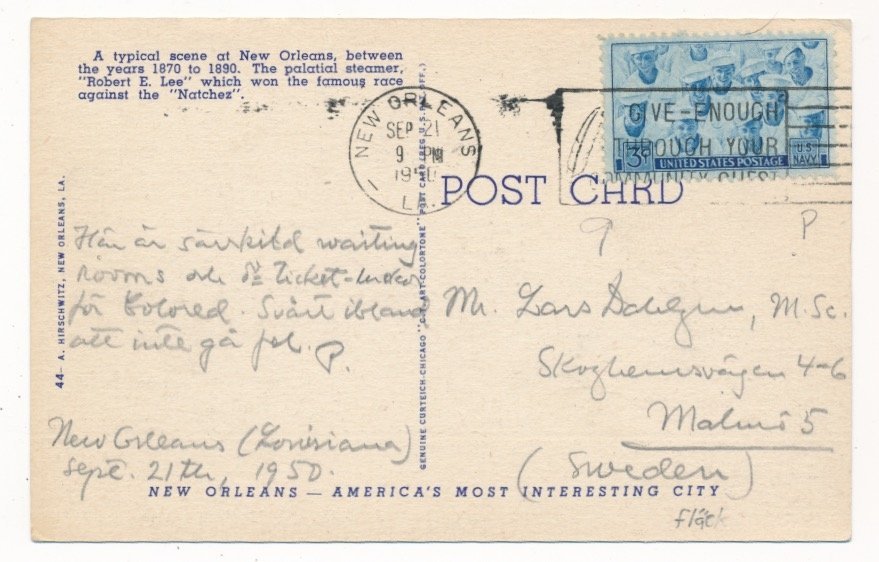 A typical scene at New Orleans, between
the years 1870 to 1890. The palatial steamer,
"Robert E. Lee" which won the famous race
against the "Natchez".
NEW ORLEANS
SEP 21
9 PM
1950
LA.
GIVE-ENOUGH
THROUGH YOUR
COMMUNITY CHEST
3¢
UNITED STATES POSTAGE
U.S.
NAVY
POST CARD
44- A. HIRSCHWITZ, NEW ORLEANS, LA.
GENUINE CURTEICH-CHICAGO "C.T. ART-COLORTONE" POST CARD (REG. U.S. PAT. OFF.)
Här är särskild waiting
rooms och
Ticket-luckor
för Colored. Svårt ibland
att inte gå fel. P.
New Orleans (Louisiana)
Sept. 21th, 1950.
P
Mr. Lars Dahlgren, M.Sc.
Skoghemsvägen 4-6
Malmö 5
(Sweden)
NEW ORLEANS — AMERICA'S MOST INTERESTING CITY
fläck